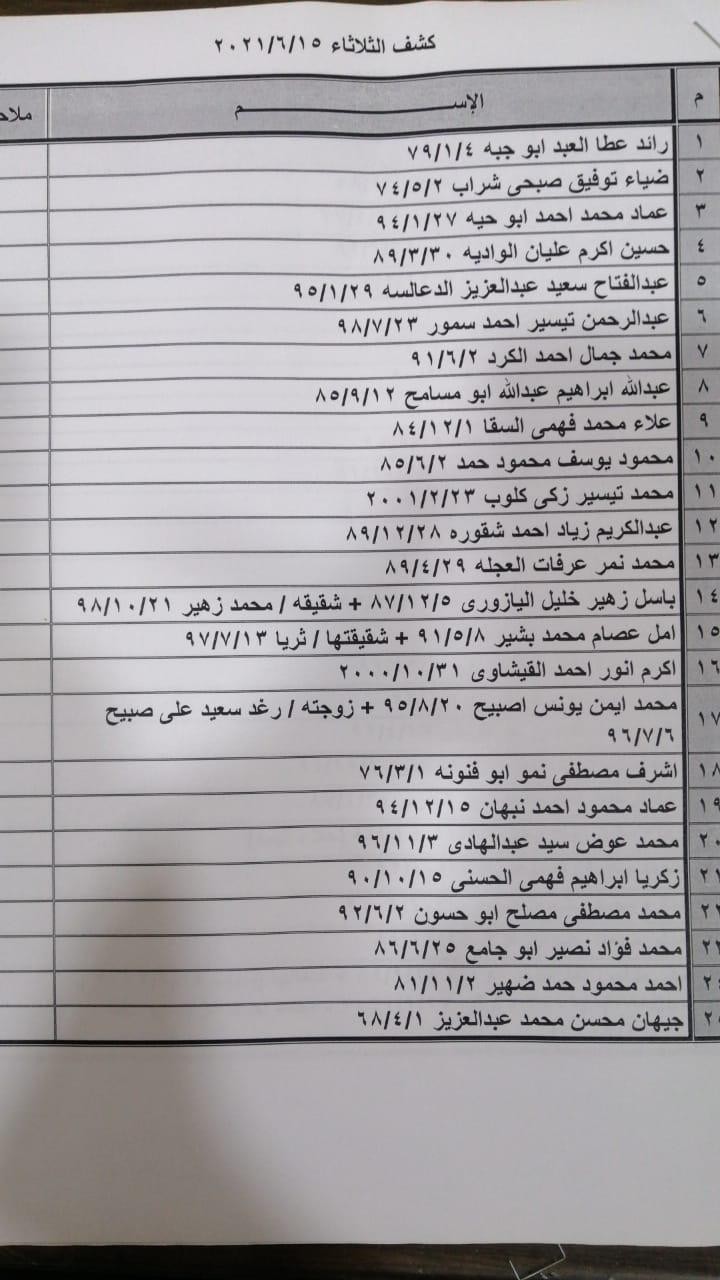 كشف الثلاثاء ٢٠٢١/٦/١٥
م الإســـــــــــم
١ رائد عطا العبد ابو جبه ٧٩/١/٤
٢ ضياء توفيق صبحى شراب ٧٤/٥/٢
٣ عماد محمد احمد ابو حيه ٩٤/١/٢٧
٤ حسين اكرم عليان الواديه ٨٩/٣/٣٠
٥ عبدالفتاح سعيد عبدالعزيز الدعالسه ٩٥/١/٢٩
٦ عبدالرحمن تيسير احمد سمور ٩٨/٧/٢٣
٧ محمد جمال احمد الكرد ٩١/٦/٢
٨ عبدالله ابراهيم عبدالله ابو مسامح ٨٥/٩/١٢
٩ علاء محمد فهمى السقا ٨٤/١٢/١
١٠ محمود يوسف محمود حمد ٨٥/٦/٢
١١ محمد تيسير زكى كلوب ٢٠٠١/٢/٢٣
١٢ عبدالكريم زياد احمد شقوره ٨٩/١٢/٢٨
١٣ محمد نمر عرفات العجله ٨٩/٤/٢٩
١٤ باسل زهير خليل اليازورى ٨٧/١٢/٥ + شقيقه / محمد زهير ٩٨/١٠/٢١
١٥ امل عصام محمد بشير ٩١/٥/٨ + شقيقتها / ثريا ٩٧/٧/١٣
١٦ اكرم انور احمد القيشاوى ٢٠٠٠/١٠/٣١
١٧ محمد ايمن يونس اصبيح ٩٥/٨/٢٠ + زوجته / رغد سعيد على صبيح
٩٦/٧/٦
١٨ اشرف مصطفى نمو ابو فنونه ٧٦/٣/١
١٩ عماد محمود احمد نبهان ٩٤/١٢/١٥
٢٠ محمد عوض سيد عبدالهادى ٩٦/١١/٣
٢١ زكريا ابراهيم فهمى الحسنى ٩٠/١٠/١٥
٢٢ محمد مصطفى مصلح ابو حسون ٩٢/٦/٢
٢٣ محمد فؤاد نصير ابو جامع ٨٦/٦/٢٥
٢٤ احمد محمود حمد ضهير ٨١/١١/٢
٢٥ جيهان محسن محمد عبدالعزيز ٦٨/٤/١